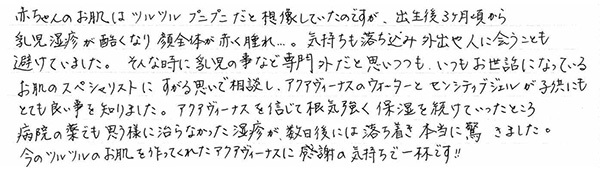 赤ちゃんのお肌はツルツルプニプニだと想像していたのですが、出生後3ヶ月頃から
乳児湿疹が酷くなり顔全体が赤く腫れ…。気持ちも落ち込み外出や人に会うことも
避けていました。そんな時に乳児の事など専門外だと思いつつも、いつもお世話になっている
お肌のスペシャリストにすがる思いで相談し、アクアヴィーナスのウォーターとセンシティブジェルが子供にも
とても良い事を知りました。アクアヴィーナスを信じて根気強く保湿を続けていったところ
病院の薬でも思う様に治らなかった湿疹が、数日後には落ち着き本当に驚きました。
今のツルツルのお肌を作ってくれたアクアヴィーナスに感謝の気持ちで一杯です!!